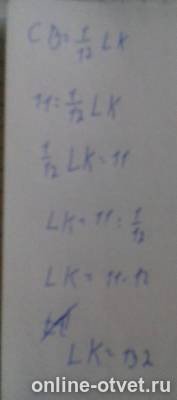 CB=1/12 LK
11=1/12 LK
1/12 LK=11
LK=11:1/12
LK=11·12
LK=132
online-otvet.ru